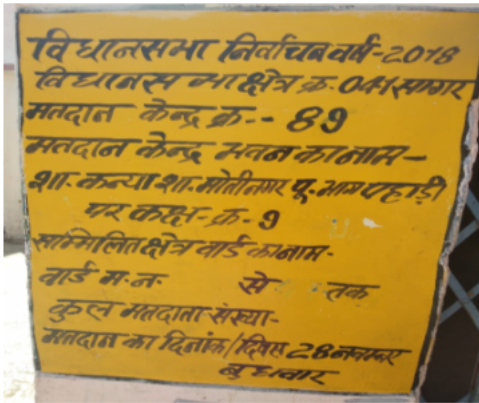 विधानसभा निर्वाचन वर्ष-2018
विधानसभा क्षेत्र क्र. 041 सागर
मतदान केन्द्र क्र.- 89
मतदान केन्द्र भवन का नाम-
शा. कन्या शा. मोतीनगर पू. भाग पहाड़ी
पर कक्ष-क्र-9
सम्मिलित क्षेत्र वार्ड का नाम-
वार्ड म.न. से तक
कुल मतदाता संख्या-
मतदान का दिनांक/दिवस 28 नवम्बर
बुधवार